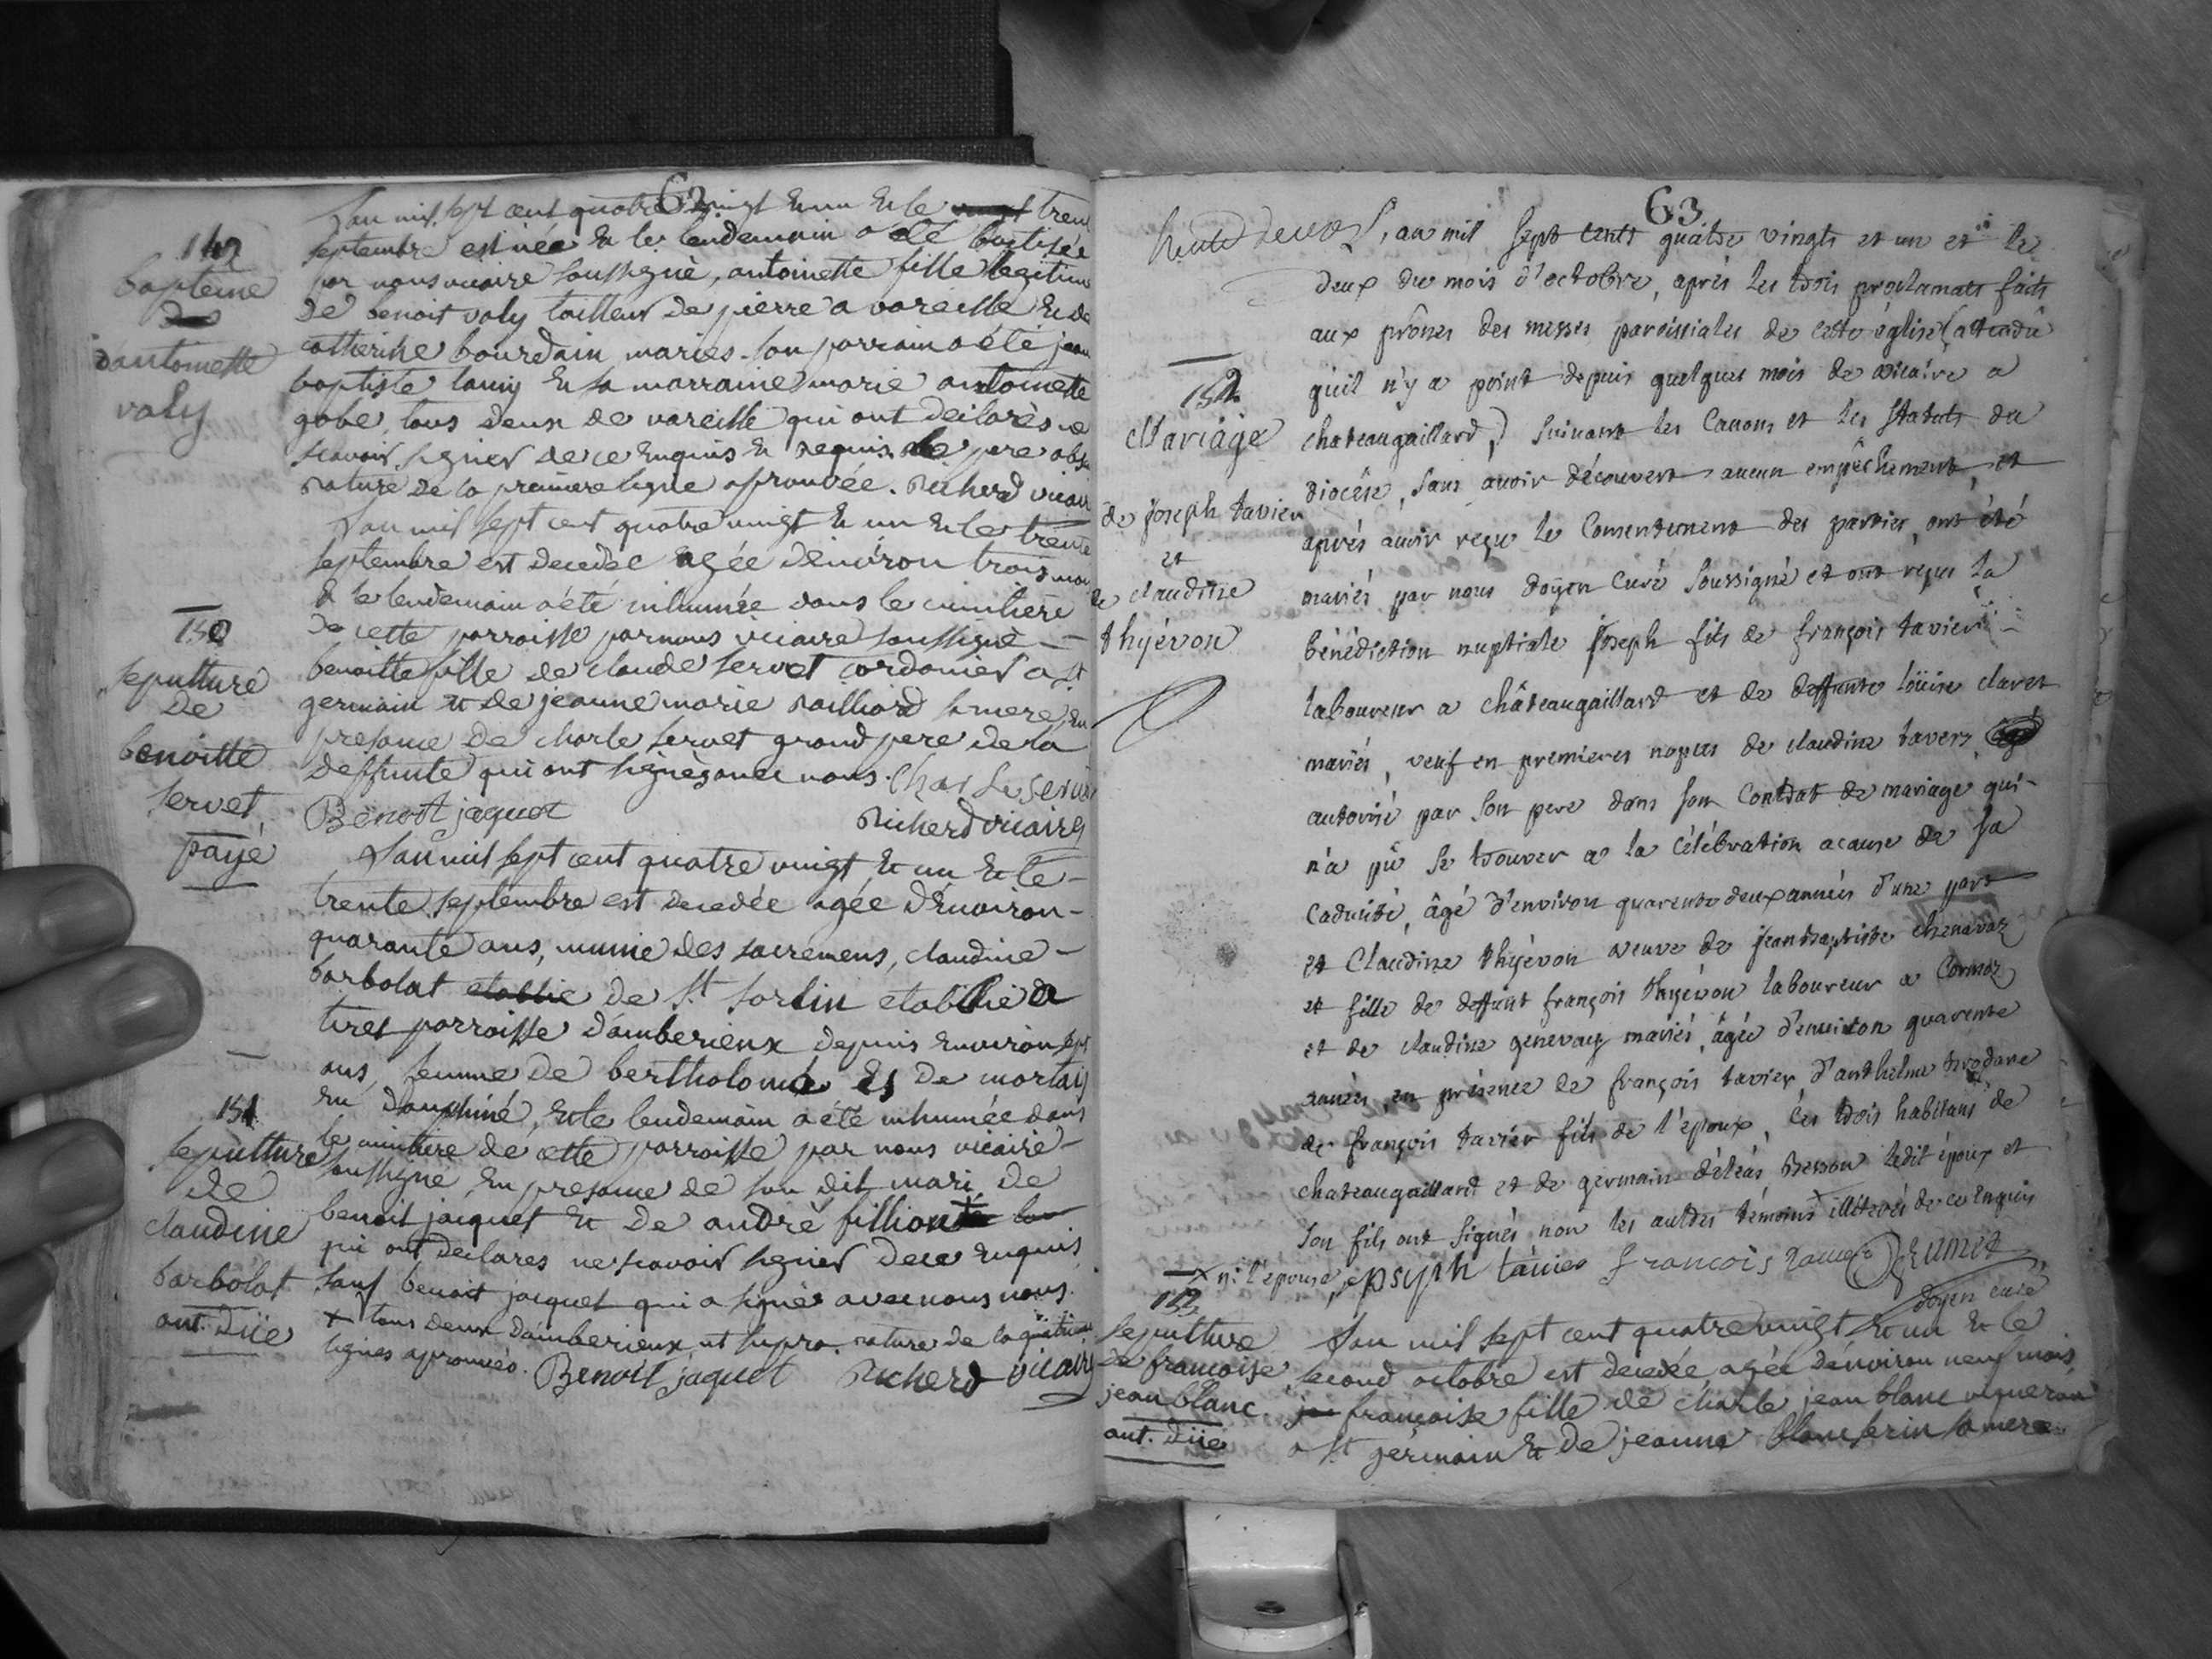 62
149
bapteme
d'antoinette
valy
L'an mil sept cent quatre vingt et un et le trente
septembre est née et le lendemain a été baptisée
par nous vicaire soussigné, antoinette fille legitime
de benoit valy tailleur de pierre a vareille et de
catherine bourdain mariés. son parrain a été jean
baptiste lamy et sa marraine marie antoinette
gobe, tous deux de vareille qui ont déclarés ne
scavoir signer de ce enquis et requis. le pere absent
rature de la première ligne aprouvée. Richerd vicaire
150
sepulture
de
benoitte
servet
payé
L'an mil sept cent quatre vingt et un et le trente
septembre est decedée agée d'environ trois mois
& le lendemain a été inhumée dans le cimitière
de cette parroisse par nous vicaire soussigné
benoitte fille de claude servet cordonier a st
germain et de jeanne marie railliard sa mere, en
presence de charle servet grand pere de la
deffunte qui ont signés avec nous. Charle servet
Benoit jaquet Richerd vicaire
151
sepulture
de
claudine
barbolat
ant. düe
L'an mil sept cent quatre vingt et un et le
trente septembre est decedée agée d'environ
quarante ans, munie des sacremens, claudine
barbolat etablie de St sorlin etablie a
tiret parroisse d'amberieux depuis environ sept
ans, femme de bertholomé es de mortay
en dauphiné, et le lendemain a été inhumée dans
le cimitiere de cette parroisse par nous vicaire
soussigné, en presence de son dit mari, de
benoit jacquet et de andré fillion +
qui ont declares ne scavoir signer de ce enquis,
sauf benoit jacquet qui a signé avec nous.
+ tous deux d'amberieux ut supra. rature de la quatrieme
lignes aprouvées. Benoit jaquet Richerd vicaire
63
trente deux
152
Mariage
de joseph tavier
et
de claudine
thyévon
L'an mil sept cents quatre vingts et un et le
deux du mois d'octobre, après les trois proclamats faits
aux prônes des messes paroissiales de cette église (attendu
qu'il n'y a point depuis quelques mois de vicaire a
chateaugaillard,) suivant les Canons et les statuts du
diocèse, sans avoir découvert aucun empêchement, et
après avoir reçu le Consentement des parties, ont été
mariés par nous doyen Curé soussigné et ont reçu la
bénédiction nuptiale joseph fils de françois tavier
laboureur a châteaugaillard et de deffunte loüise claret
mariés, veuf en premieres nopces de claudine tavers,
autorisé par son pere dans son Contrat de mariage qui
n'a pû se trouver a la célébration a cause de sa
caducité, âgé d'environ quarente deux années d'une part
et Claudine thyévon veuve de jean baptiste chenavaz
et fille de deffunt françois thyévon laboureur a Cormoz
et de claudine genevay mariés, âgée d'environ quarente
années, en présence de françois tavier, d'anthelme brodane
de françois tavier fils de l'époux, ces trois habitans de
chateaugaillard et de germain déleas besson ledit époux et
son fils ont signés non les autres témoins × illiterés de ce enquis
× ni l'epouse, josepsyph tavier francois tavier Grumet
doyen curé
153
sepulture
de francoise
jean blanc
ant. düe
L'an mil sept cent quatre vingt et un et le
second octobre est decedée agée d'environ neuf mois,
françoise fille de charle jean blanc vigneron
a st germain et de jeanne blanc ferin sa mere